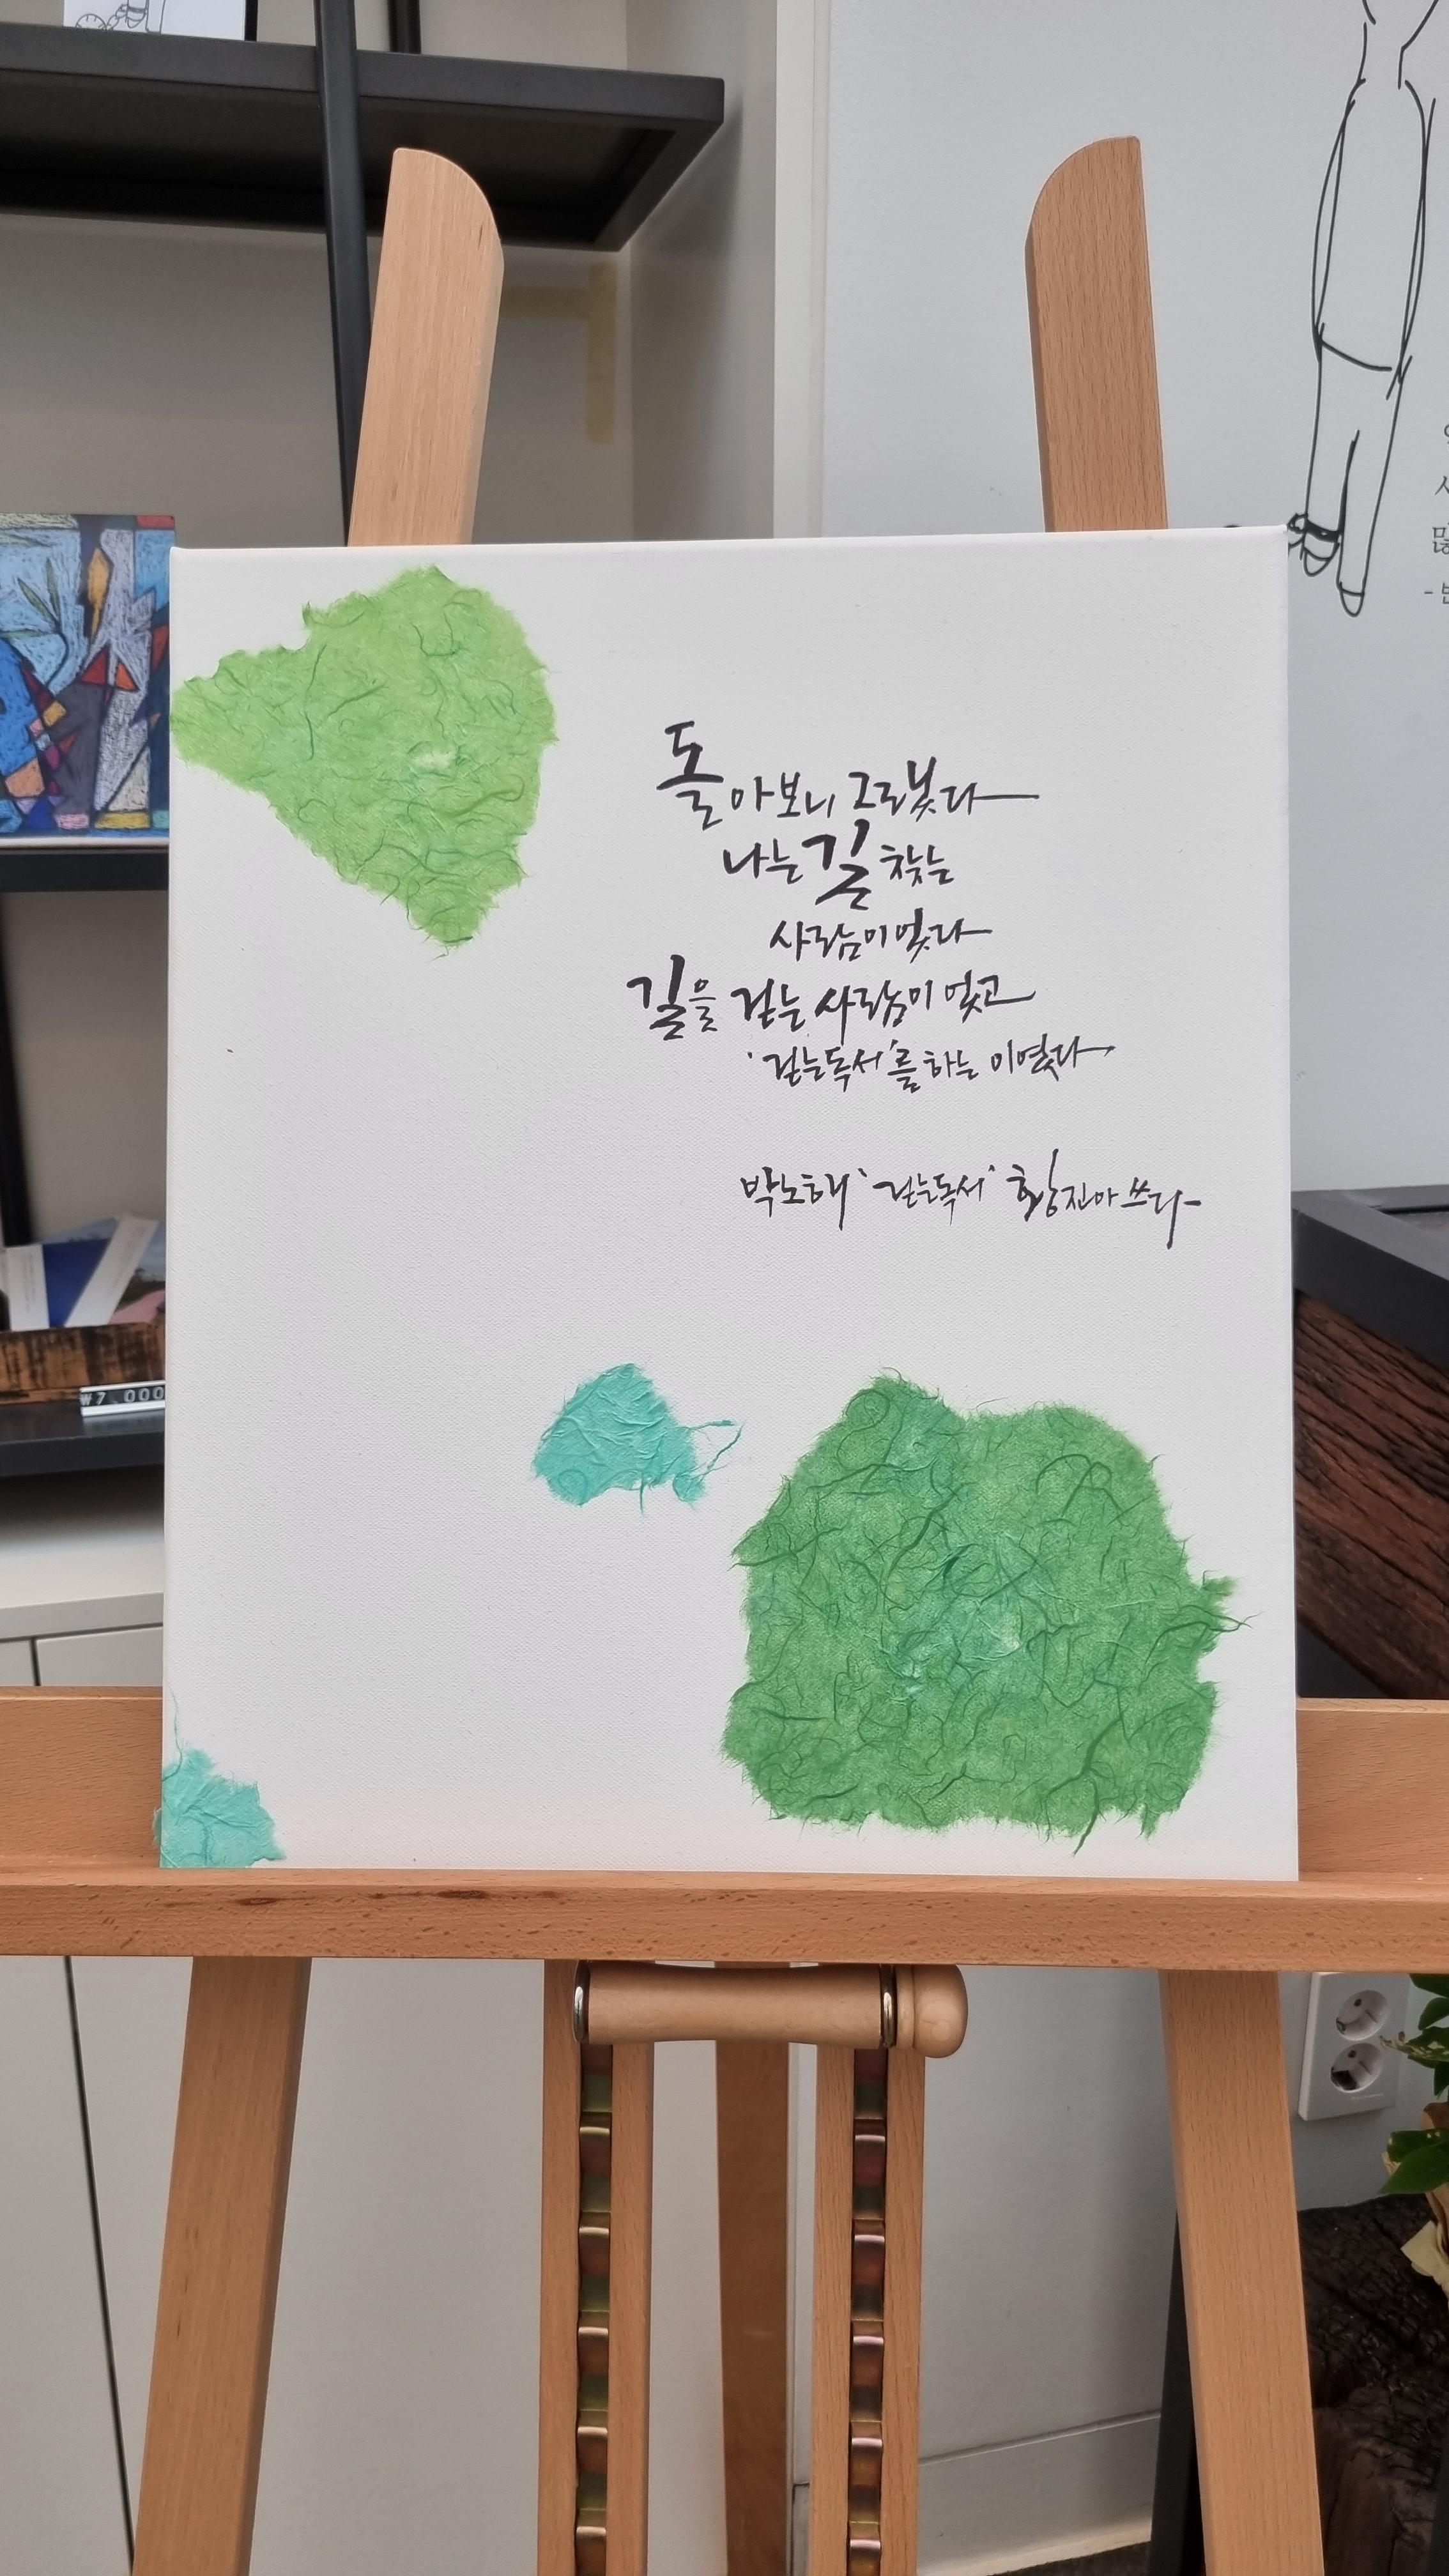 돌아보니 그랬다
나는 길 찾는
사람이었다
길을 걷는 사람이었고
'걷는독서'를 하는 이였다
박노해 '걷는독서' 황진아 쓰다
₩7,000
많